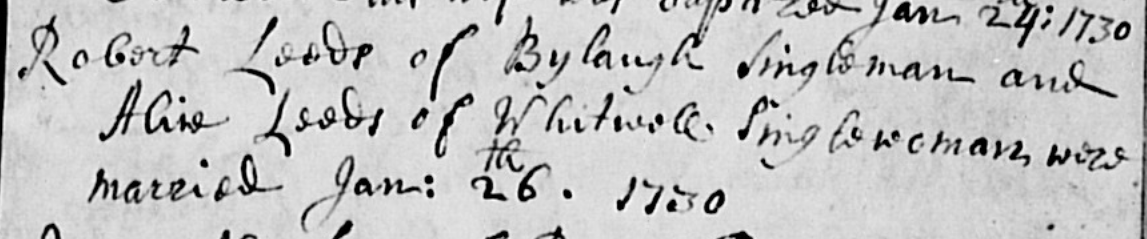 baptized Jan 24: 1730
Robert Leeds of Bylaugh Singleman and
Alice Leeds of Whitwell Singlewoman were
married Jan: 26th. 1730